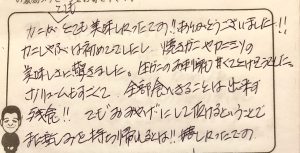 とても
カニがとても美味しかったです!!ありがとうございました!!
カニしゃぶは初めてでしたし、焼きガニやカニミソの
美味しさに驚きました。
ボリュームもすごくて全部食べきることは出来ず
残念!! でもおみやげにして頂けるということで
お楽しみを持ち帰れるとは!! 嬉しかったです